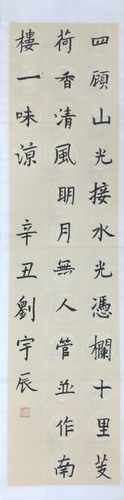 四顧山光接水光憑欄十里芰
荷香清風明月無人管並作南
樓一味涼 辛丑劉宇辰